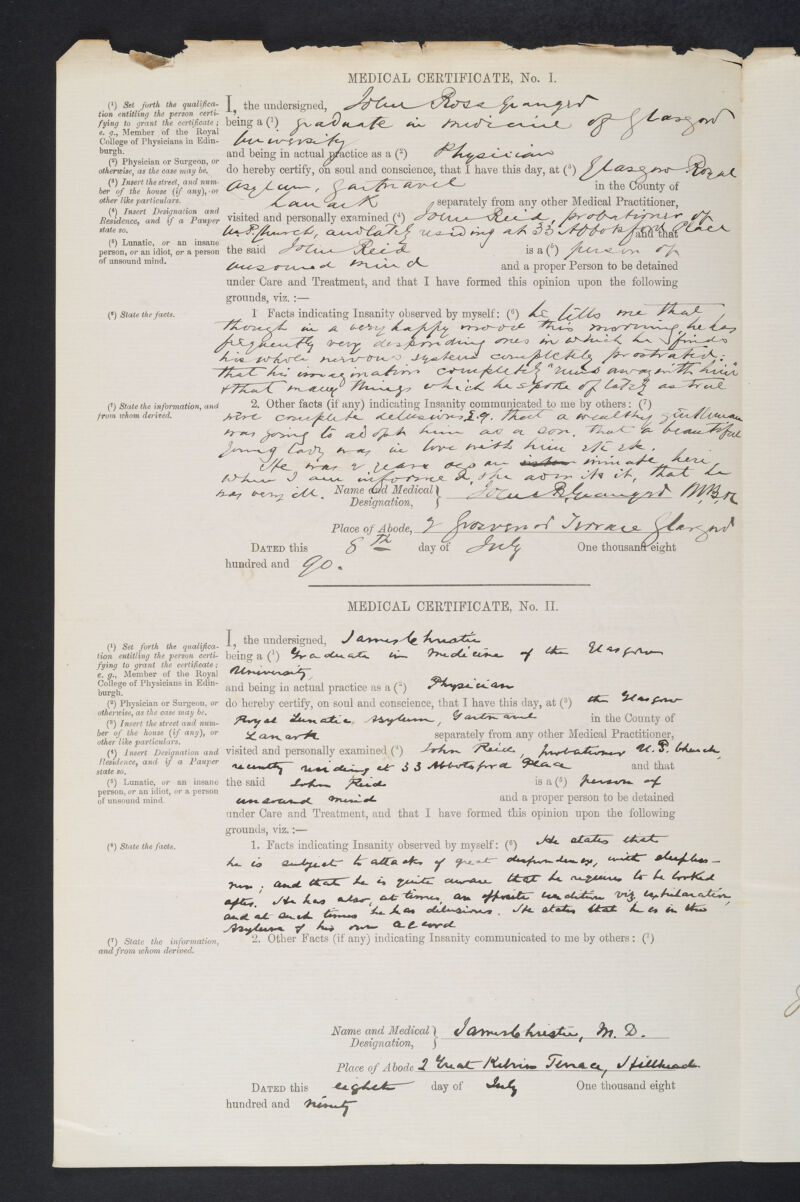 MEDICAL CERTIFICATE, No. I.
(¹) Set forth the qualifica-
tion entitling the person certi-
fying to grant the certificate;
e. g., Member of the Royal
College of Physicians in Edin-
burgh.
(²) Physician or Surgeon, or
otherwise, as the case may be.
(³) Insert the street, and num-
ber of the house (if any), or
other like particulars.
(⁴) Insert Designation and
Residence, and if a Pauper
state so.
(⁵) Lunatic, or an insane
person, or an idiot, or a person
of unsound mind.
I, the undersigned, John Ross Granger
being a (¹) graduate in medicine of Glasgow
University
and being in actual practice as a (²) Physician
do hereby certify, on soul and conscience, that I have this day, at (³) Glasgow Royal
Asylum, Gartnavel in the County of
Lanark separately from any other Medical Practitioner,
visited and personally examined (⁴) John Reid, probationer of
U.P. Church, and lately residing at 33 Abbotsford Place and that
the said John Reid is a (⁵) person of
unsound mind and a proper Person to be detained
under Care and Treatment, and that I have formed this opinion upon the following
grounds, viz. :—
(⁶) State the facts.
1 Facts indicating Insanity observed by myself: (⁶) he tells me that
though in a very happy mood this morning, he has
frequently very desponding ones in which he finds
his whole nervous system completely prostrated;
that his imagination completely "runs away with him"
& that many things which he spoke of lately as true
(⁷) State the information, and
from whom derived.
2. Other facts (if any) indicating Insanity communicated to me by others: (⁷)
were complete delusions, e.g. that a wealthy gentleman
was going to adopt him as a son, that a beautiful
young lady was in love with him etc etc.
He was 2 years ago an inmate here
when I am informed, & he admits it, that he
was very ill.
Name and Medical John R. Granger M.B.
Designation,
Place of Abode, 2 Grosvenor Terrace Glasgow
DATED this 8th day of July One thousand eight
hundred and 90.
MEDICAL CERTIFICATE, No. II.
(¹) Set forth the qualifica-
tion entitling the person certi-
fying to grant the certificate;
e. g., Member of the Royal
College of Physicians in Edin-
burgh.
(²) Physician or Surgeon, or
otherwise, as the case may be.
(³) Insert the street and num-
ber of the house (if any), or
other like particulars.
(⁴) Insert Designation and
Residence, and if a Pauper
state so.
(⁵) Lunatic, or an insane
person, or an idiot, or a person
of unsound mind.
I, the undersigned, James Christie
being a (¹) Graduate in Medicine of the Glasgow
University
and being in actual practice as a (²) Physician
do hereby certify, on soul and conscience, that I have this day, at (³) the Glasgow
Royal Lunatic Asylum, Gartnavel in the County of
Lanark separately from any other Medical Practitioner,
visited and personally examined (⁴) John Reid, probationer U.P. Church,
recently residing at 33 Abbotsford Place and that
the said John Reid is a (⁵) person of
unsound mind and a proper person to be detained
under Care and Treatment, and that I have formed this opinion upon the following
grounds, viz. :—
(⁶) State the facts.
1. Facts indicating Insanity observed by myself: (⁶) He states that
he is subject to attacks of great despondency, with sleepless-
ness; and that he is quite aware that he requires to be looked
after. He has also, at times, an opposite condition viz exhilaration,
and at such times he has delusions. He states that he is in this
Asylum of his own accord
(⁷) State the information,
and from whom derived.
2. Other Facts (if any) indicating Insanity communicated to me by others: (⁷)
Name and Medical James Christie, M. D.
Designation,
Place of Abode 2 Great Kelvin Terrace, Hillhead.
DATED this eighth day of July One thousand eight
hundred and ninety